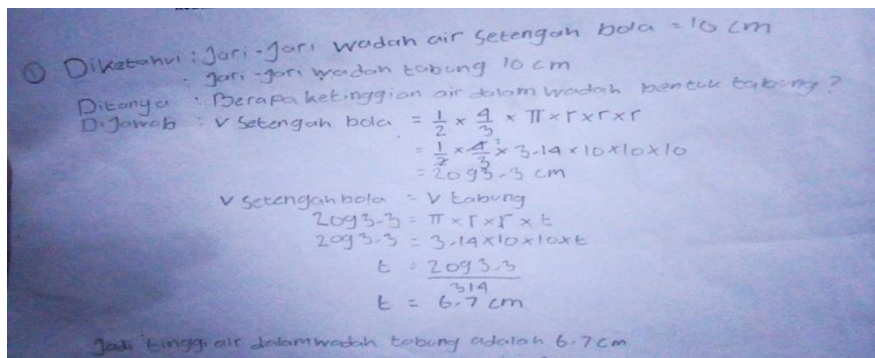 ① Diketahui : Jari-Jari wadah air setengah bola = 10 cm
: Jari-jari wadah tabung 10 cm
Ditanya : Berapa ketinggian air dalam wadah bentuk tabung?
Dijawab : V setengah bola = 1/2 × 4/3 × π × r × r × r
= 1/2 × 4/3 × 3.14 × 10 × 10 × 10
= 2093.3 cm
V setengah bola = V tabung
2093.3 = π × r × r × t
2093.3 = 3.14 × 10 × 10 × t
t = 2093.3
314
t = 6.7 cm
Jadi tinggi air dalam wadah tabung adalah 6.7 cm